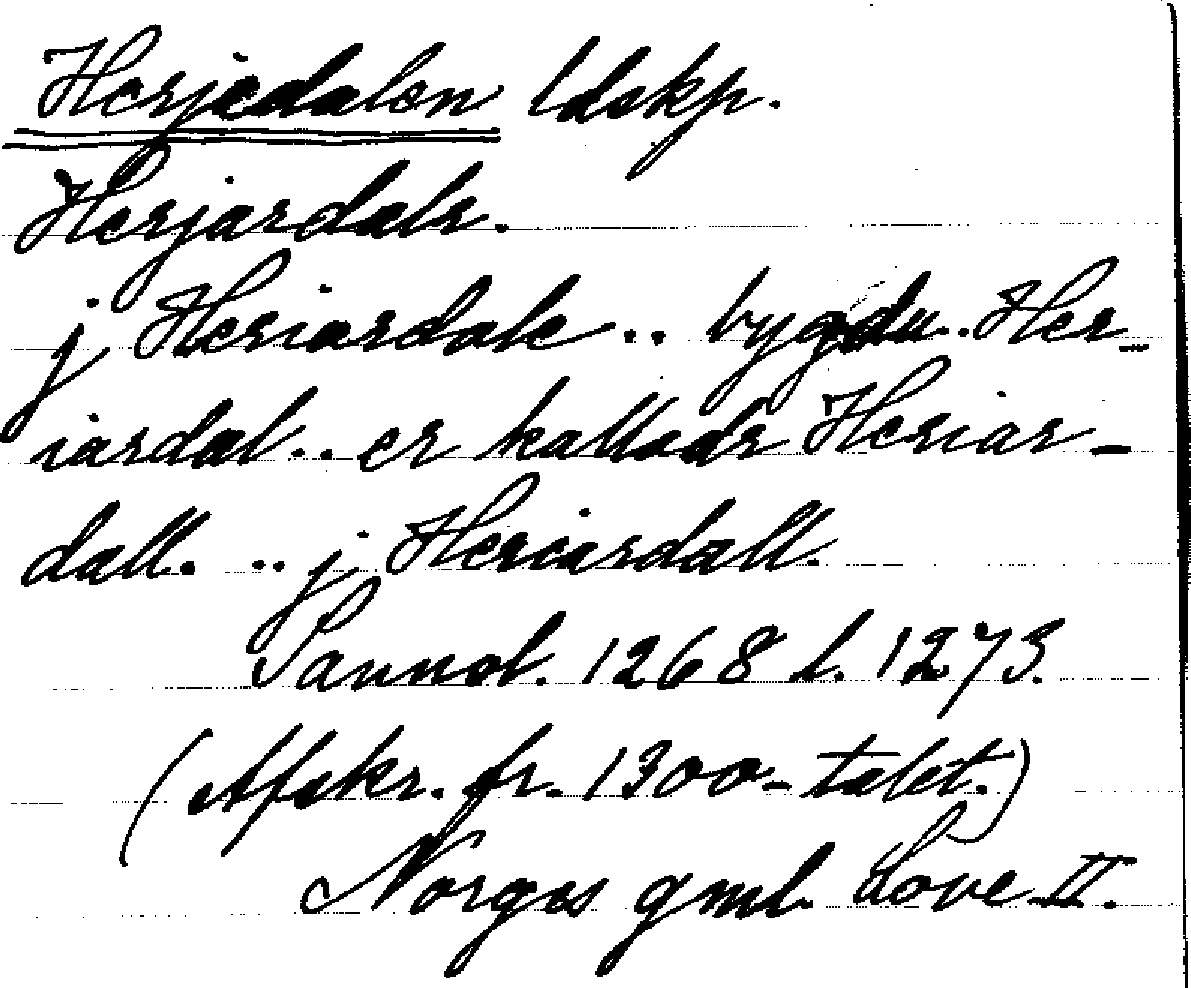 Herjedalen ldskp.
Herjardalr.
j Heriardale .. bygdu .. Her-
iardal .. er kalladr Heriar-
dall. .. j Heriardall.
Sannol. 1268 l. 1273.
(Afskr. fr. 1300-talet.)
Norges gml. Love II.